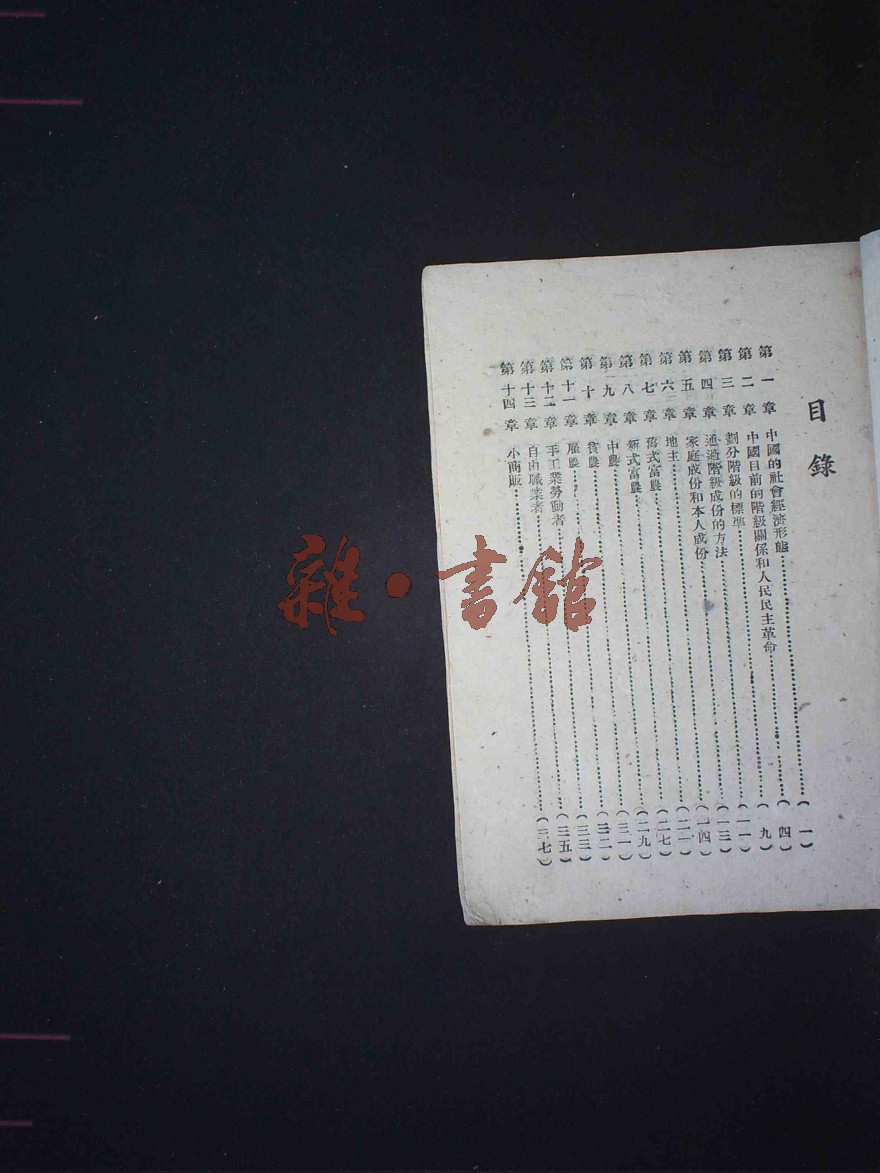 目錄
第一章 中國的社會經濟形態……(一)
第二章 中國目前的階級關係和人民民主革命……(四)
第三章 劃分階級的標準……(九)
第四章 通過階級成份的方法……(一一)
第五章 家庭成份和本人成份……(一三)
第六章 地主……(一四)
第七章 舊式富農……(二一)
第八章 新式富農……(二七)
第九章 中農……(二九)
第十章 貧農……(三一)
第十一章 雇農……(三二)
第十二章 手工業勞動者……(三三)
第十三章 自由職業者……(三五)
第十四章 小商販……(三七)
雜·書館